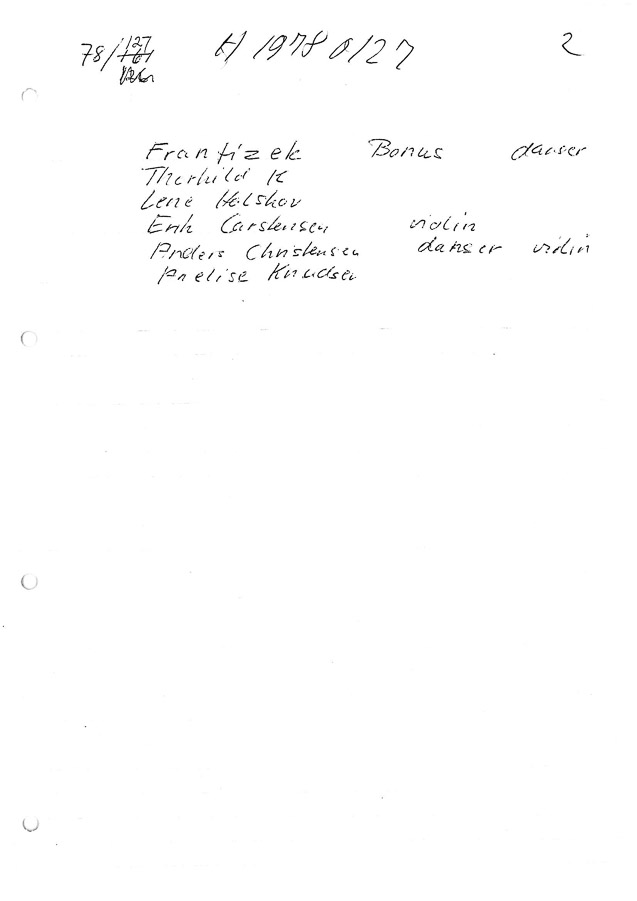 78/127 H 1978 0/27 2
Frantizek Bonus danser
Therkild K
Lene Halskov
Erik Carstensen violin
Anders Christensen danser violin
Anelise Knudsen